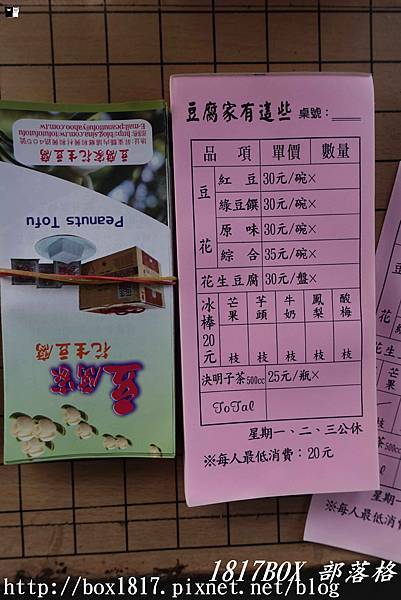 豆腐家有這些 桌號：
品 項 單價 數量
豆花 紅 豆 30元/碗×
綠豆饌 30元/碗×
原 味 30元/碗×
綜 合 35元/碗×
花生豆腐 30元/盤×
冰棒20元 芒果 芋頭 牛奶 鳳梨 酸梅
枝 枝 枝 枝 枝
決明子茶500cc 25元/瓶×
ToTal
星期一、二、三公休
※每人最低消費：20元
豆腐家
花生豆腐
Peanuts Tofu
豆腐家花生豆腐
花
芒果
枝
決明子茶
ToTal
星期一
※每人最低消
1817BOX 部落格
http://box1817.pixnet.net/blog